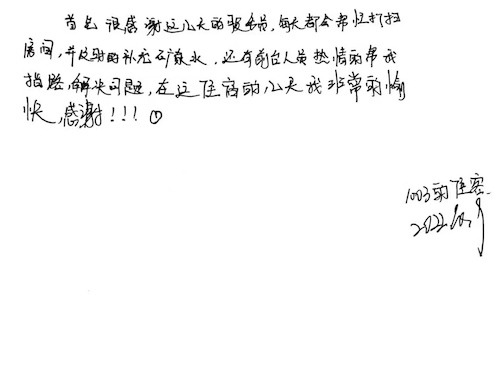 首先很感谢这几天的服务员,每天都会帮忙打扫
房间,并及时的补充矿泉水,还有前台人员热情的帮我
指路,解决问题,在这住宿的几天我非常的愉
快,感谢!!!
1003的住客
2022.